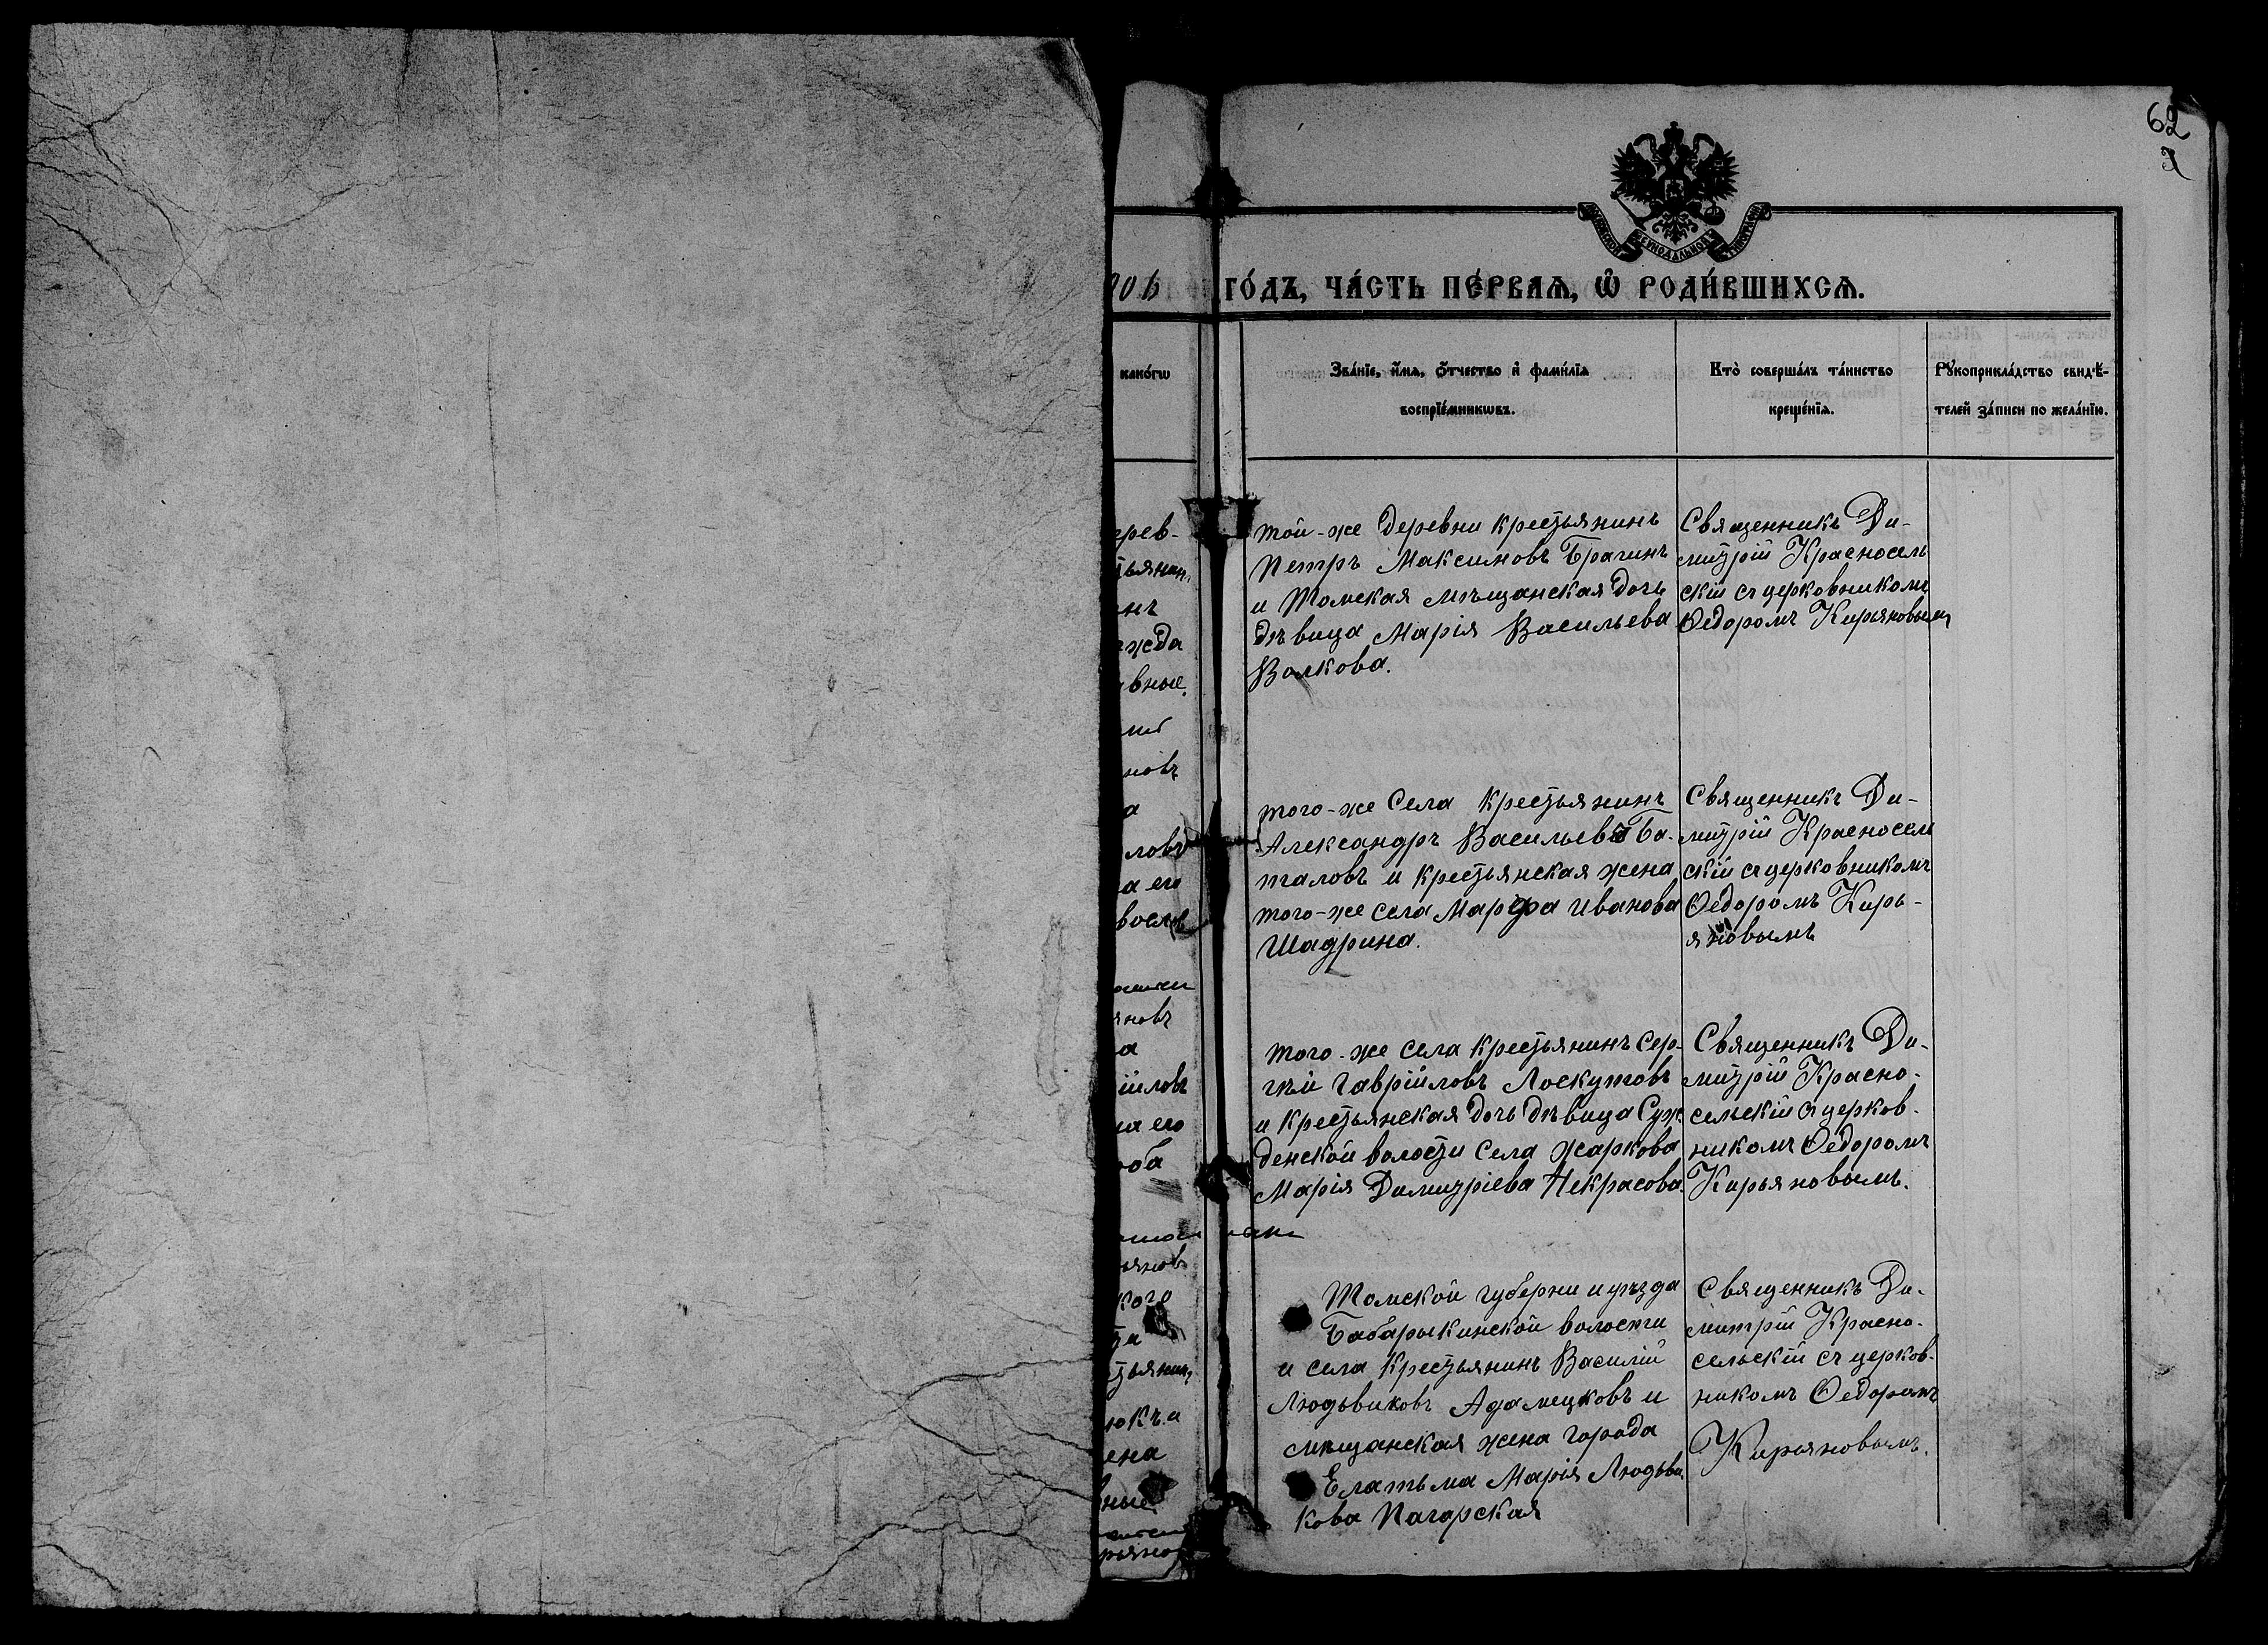 62
906 го́дъ, ча́сть пе́рваѧ, ѽ роди́вшихсѧ.
како́гѡ
Зва́нїе, и҆́мѧ, ѻ҆́тчество и҆ фами́лїѧ
воспрїе́мникѡвъ.
Кто̀ соверша́лъ та́инство
креще́нїѧ.
Рꙋкоприкла́дство свидѣ́-
телей за́писи по жела́нїю.
той-же деревни крестьянинъ
Петръ Максимовъ Брагинъ
и Томская мѣщанская дочь
дѣвица Марія Васильева
Волкова.
Священникъ Ди-
митрій Красносель
скій съ церковникомъ
Ѳедоромъ Кирьяновымъ
того-же села крестьянинъ
Александръ Васильевъ Ба-
таловъ и крестьянская жена
того-же села Марѳа Иванова
Шадрина.
Священникъ Ди-
митрій Красносель
скій съ церковникомъ
Ѳедоромъ Кирь-
яновымъ
того-же села крестьянинъ Сер-
гѣй Гаврійловъ Лоскутовъ
и крестьянская дочь дѣвица Суж
денской волости села Жаркова
Марія Димитріева Некрасова.
Священникъ Ди-
митрій Красно-
сельскій съ церков-
никомъ Ѳедоромъ
Кирьяновымъ.
Томской губерни и уѣзда
Бабарыкинской волости
и села крестьянинъ Василій
Людвиковъ Адамецковъ и
мѣщанская жена города
Елатьма Марія Людьви
кова Пагарская
Священникъ Ди-
митрій Красно-
сельскій съ церков-
никомъ Ѳедоромъ
Кирьяновымъ.